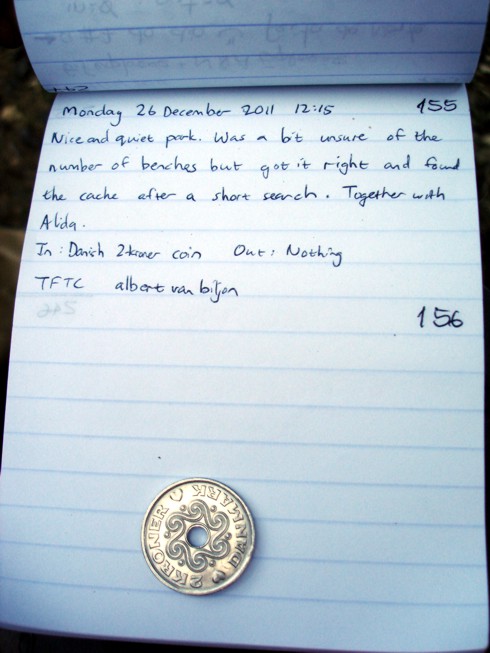 Monday 26 December 2011 12:15 155
Nice and quiet park. Was a bit unsure of the
number of benches but got it right and found
the cache after a short search. Together with
Alida.
In: Danish 2 kroner coin Out: Nothing
TFTC albert van biljon
156
2 KRONER DANMARK